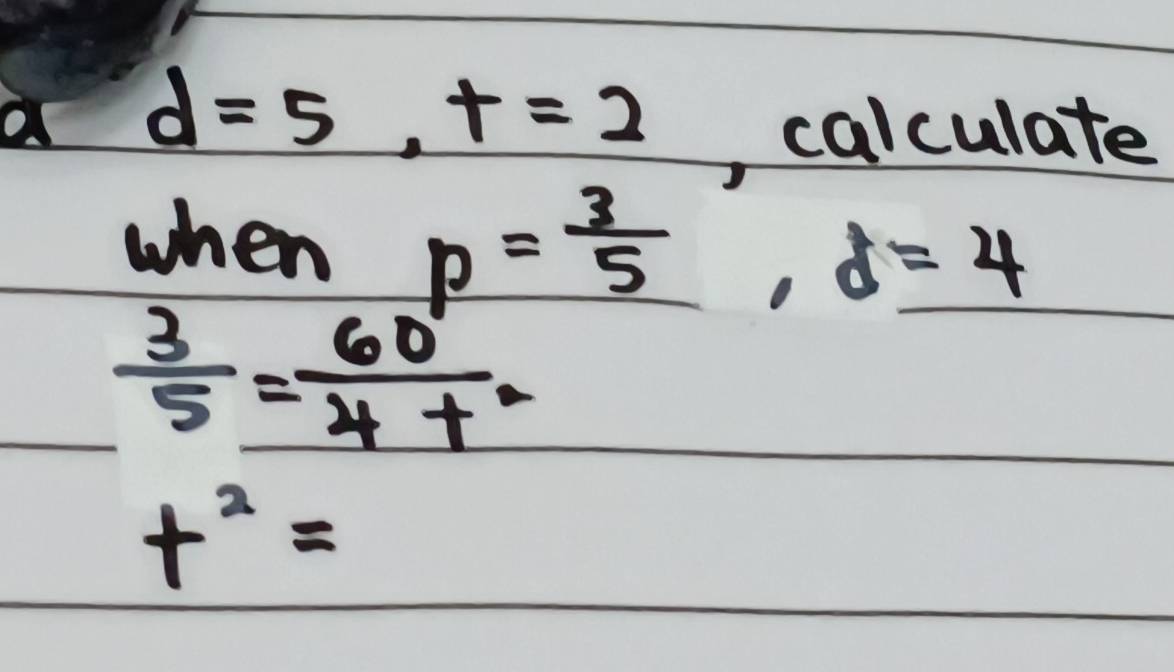 d d = 5 , t = 2 , calculate
when p = 3/5 , d = 4
3/5 = 60/4 t
t² =